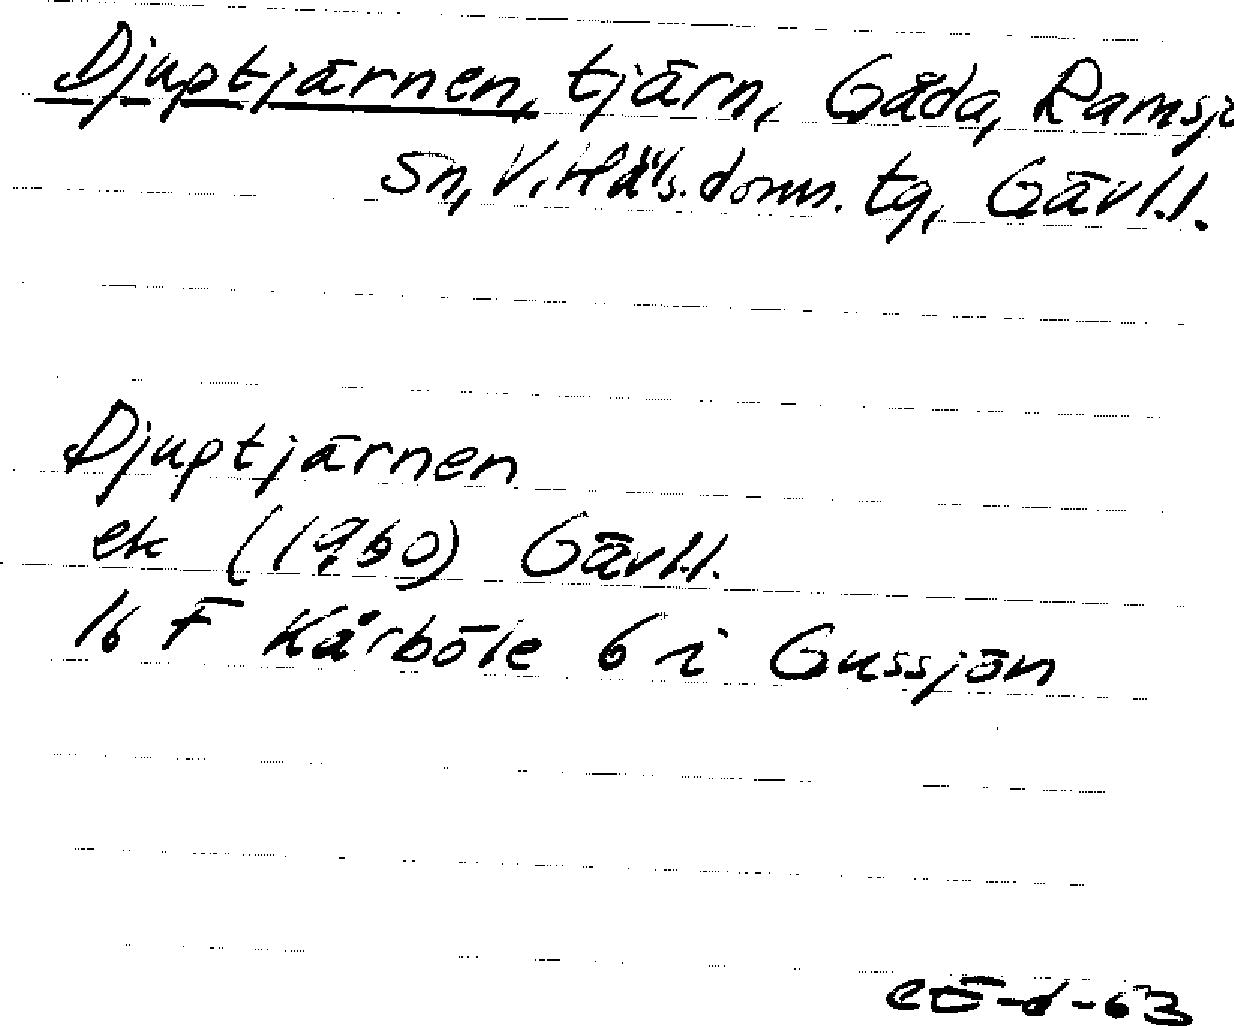 Djuptjärnen, tjärn, Gåda, Ramsjö
Sn, V. Häls. doms. tg, Gävl.l.
Djuptjärnen
ek (1960) Gävl.l.
16 F Kårböle 6 i Gussjön
eö-d-63